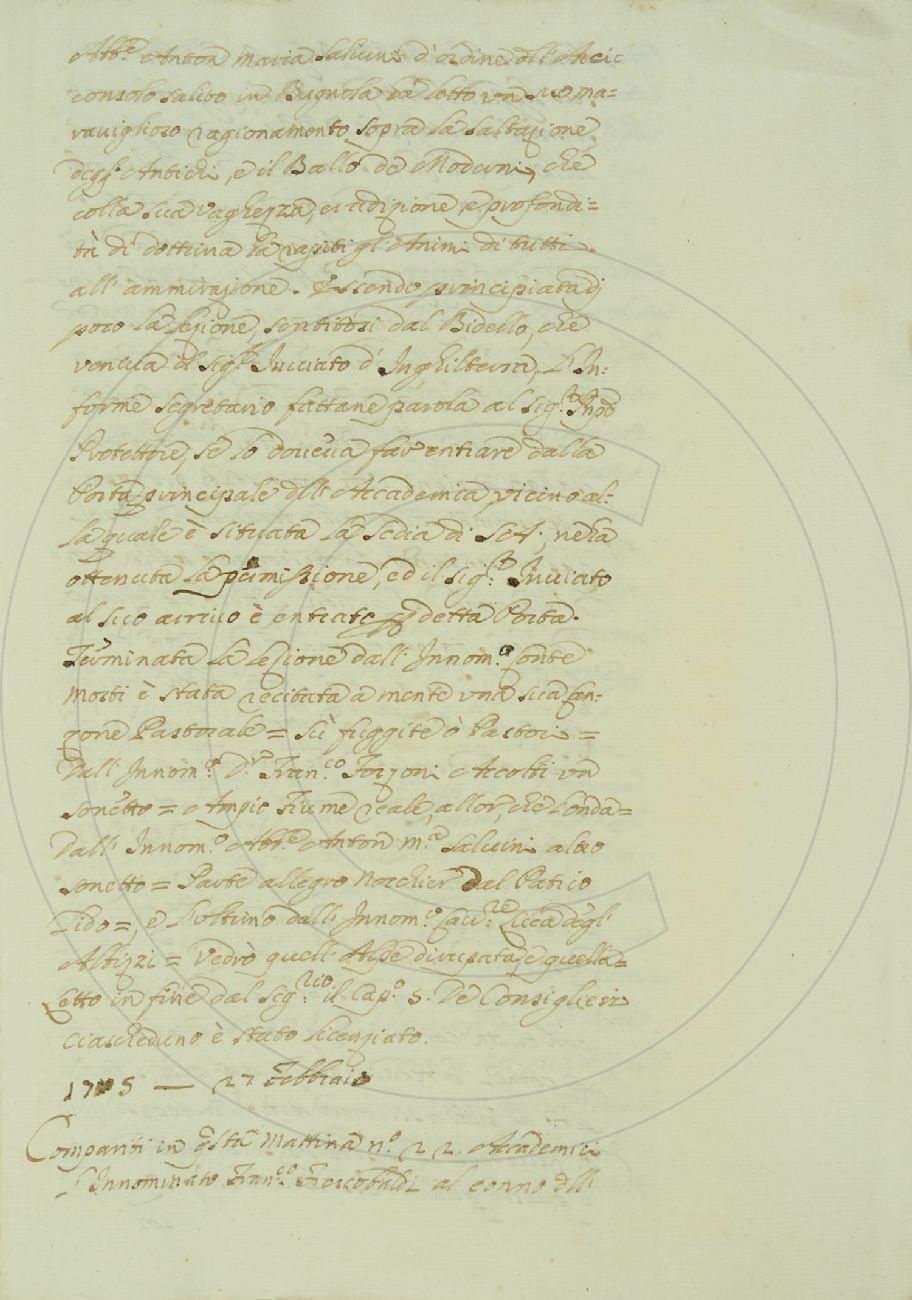 Abb.e Anton Maria Salvini d'ordine dell'Arci
consolo salito in Bugnola hà letto un suo ma=
raviglioso ragionamento sopra la saltazione
degl'Antichi, e il Ballo de Moderni, che
colla sua vaghezza, erudizione, e profondi=
tà di dottrina hà rapiti gl'Animi di tutti
all'ammirazione. Essendo principiata di
poco la lezione, sentitosi dal Bidello, che
veniva il Sig.r Inviato d'Inghilterra, l'In:
forme segretario fattane parola al Sig.r
Protettore, se lo doveva far entrare dalla
Porta principale dell'Accademia, vicino al:
la quale è situata la sedia di S.A., ne hà
ottenuta la permissione, ed il Sig.r Inviato
al suo arrivo è entrato p detta Porta.
Terminata la lezione dall'Innom.o Conte
Morti è stata recitata a mente una sua Can:
zone Pastorale = Sì fuggite ò Pastori =
Dall'Innom.o D.r Fran.co Forzoni Accolti un
sonetto = Ampio Fiume reale, allor, che l'onda =
Dall'Innom.o Abb.e Anton M.a Salvini altro
sonetto = Parte allegro Nocchier dal Patrio
Lido =, e l'ultimo dall'Innom.o Cav.re Luca degl'
Albizzi = Vedrò quell'Alpe dirupata, e quella =
Letto in fine dal Seg.rio il Cap.o 5. De Consiglieri
ciascheduno è stato licenziato.
1705 — 27 Febbraio
Compariti in q.sta Mattina n.o 22. Accademici
L'Innominato Fran.co Frescobaldi al conno dell'